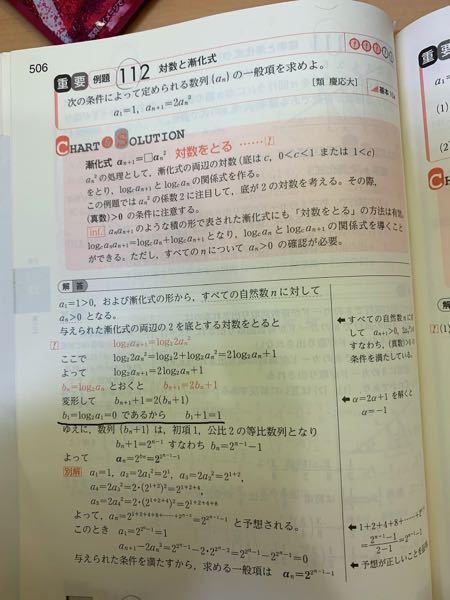 506
重要 例題 112 対数と漸化式
次の条件によって定められる数列{aₙ}の一般項を求めよ。
a₁=1, aₙ₊₁=2aₙ²
[類 慶応大]
基本
CHART & SOLUTION
漸化式 aₙ₊₁=□aₙ² 対数をとる ……[!]
aₙ²の処理として，漸化式の両辺の対数(底はc, 0<c<1 または 1<c)
をとり，log_c aₙ₊₁ と log_c aₙ の関係式を作る。
この例題では aₙ² の係数2に注目して，底が2の対数を考える。その際，
(真数)>0 の条件に注意する。
inf. aₙaₙ₊₁ のような積の形で表された漸化式にも「対数をとる」の方法は有
log_c aₙaₙ₊₁=log_c aₙ+log_c aₙ₊₁ となり，log_c aₙ と log_c aₙ₊₁ の関係式を導くこと
ができる。ただし，すべてのnについて aₙ>0 の確認が必要。
解答
a₁=1>0, および漸化式の形から，すべての自然数nに対して
aₙ>0 となる。
与えられた漸化式の両辺の2を底とする対数をとると
[!] log₂aₙ₊₁=log₂2aₙ²
ここで log₂2aₙ²=log₂2+log₂aₙ²=2log₂aₙ+1
よって log₂aₙ₊₁=2log₂aₙ+1
bₙ=log₂aₙ とおくと bₙ₊₁=2bₙ+1
変形して bₙ₊₁+1=2(bₙ+1)
b₁=log₂a₁=0 であるから b₁+1=1
ゆえに，数列{bₙ+1}は，初項1, 公比2の等比数列となり
bₙ+1=2ⁿ⁻¹ すなわち bₙ=2ⁿ⁻¹−1
よって aₙ=2^{bₙ}=2^{2ⁿ⁻¹−1}
別解 a₁=1, a₂=2a₁²=2¹, a₃=2a₂²=2¹⁺²,
a₄=2a₃²=2・(2¹⁺²)²=2¹⁺²⁺⁴,
a₅=2a₄²=2・(2¹⁺²⁺⁴)²=2¹⁺²⁺⁴⁺⁸
よって，aₙ=2^{1+2+4+8+……+2ⁿ⁻²}=2^{2ⁿ⁻¹−1} と予想される。
このとき a₁=2^{2⁰−1}=1
aₙ₊₁−2aₙ²=2^{2ⁿ−1}−2・2^{2ⁿ−2}=2^{2ⁿ−1}−2^{2ⁿ−1}=0
与えられた条件を満たすから，求める一般項は aₙ=2^{2ⁿ⁻¹−1}
←すべての自然数n
して aₙ₊₁>0, 2aₙ²
すなわち，(真数)>0
条件を満たしている。
←α=2α+1 を解くと
α=−1
←1+2+4+8+……+2ⁿ
=(2ⁿ⁻¹−1)/(2−1)=2ⁿ⁻¹−1
←予想が正しいことを